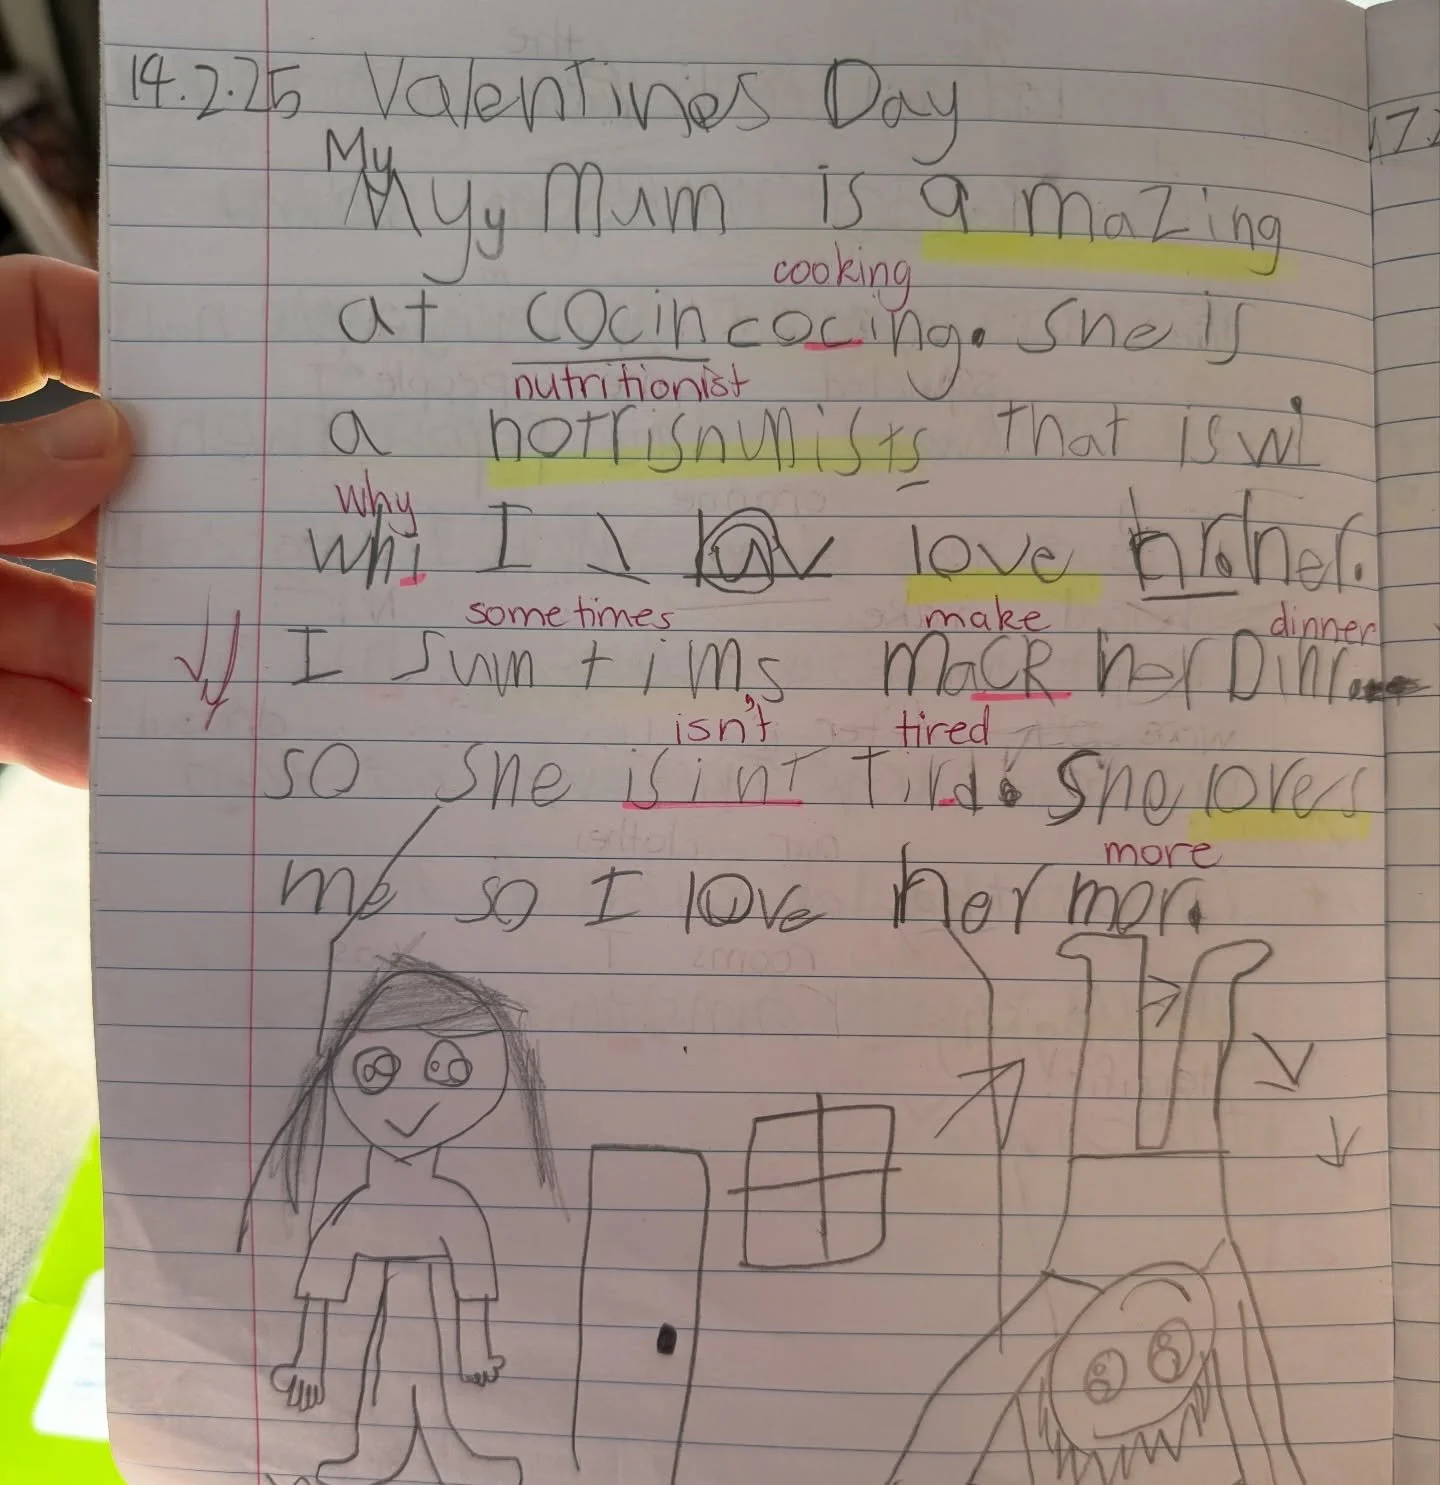 14.2.25 Valentines Day
My
My y Mum is a mazing
cooking
at cocin cocing. She is
nutritionist
a notrisnunists that is wi
why
whi I love her.
sometimes make dinner
I sum tims macR her Dinr.
isn't tired
so she isint tird. She lovers
more
me so I love her mor.
17.2